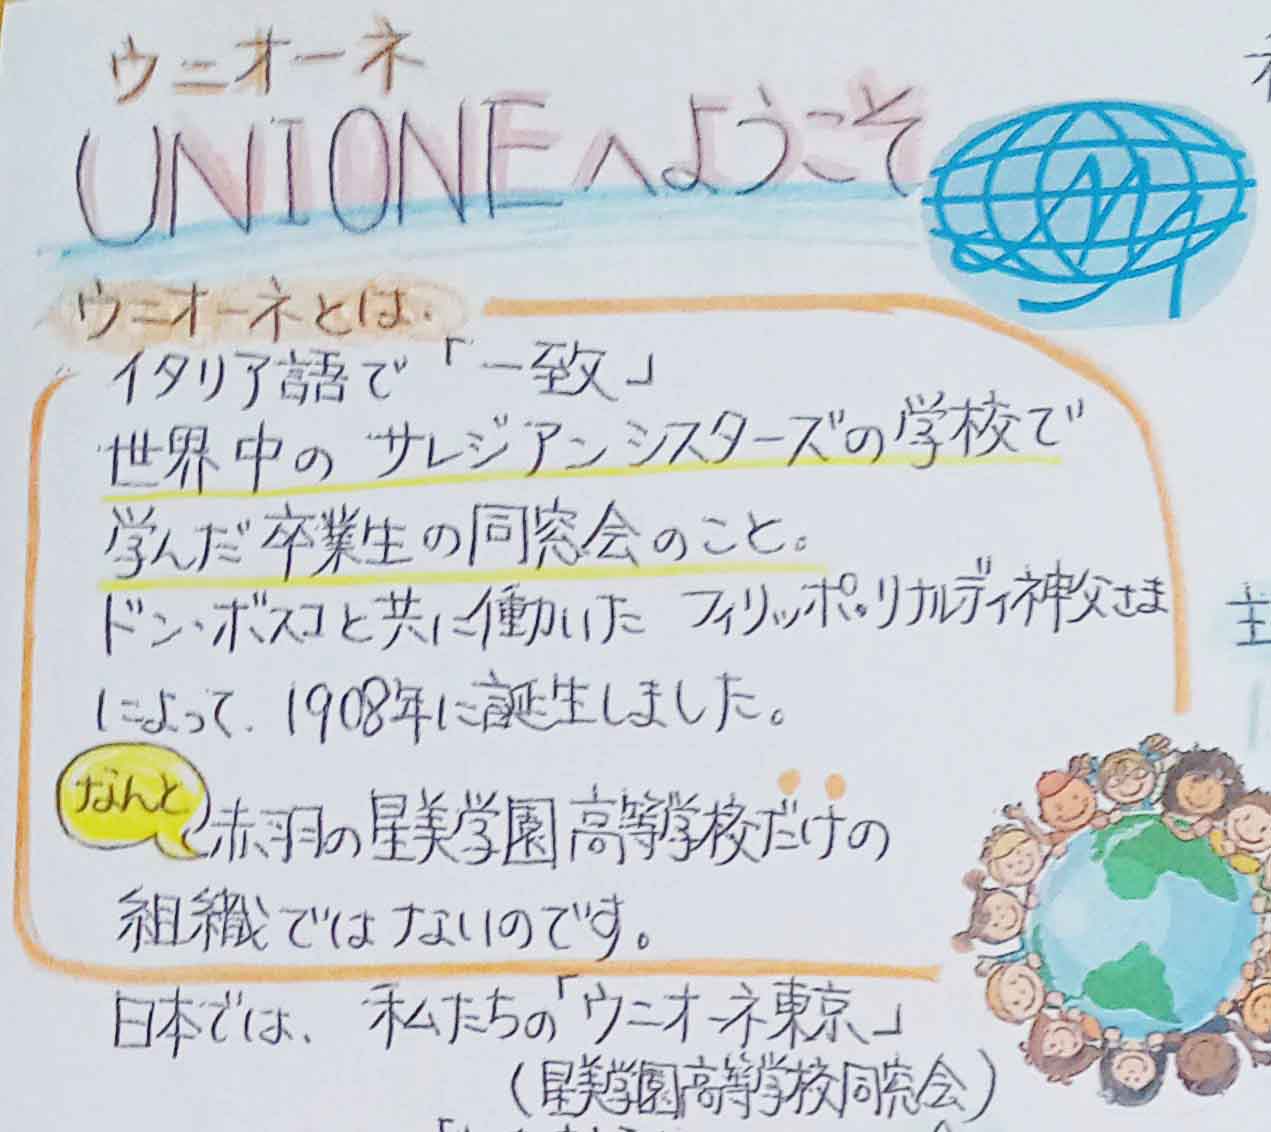 ウニオーネ
UNIONEへようこそ
ウニオーネとは.
イタリア語で「一致」
世界中の サレジアンシスターズの学校で
学んだ卒業生の同窓会のこと。
ドン・ボスコと共に働いた フィリッポ・リナルディ神父さま
によって、1908年に誕生しました。
なんと
赤羽の星美学園高等学校だけの
組織ではないのです。
日本では、私たちの「ウニオーネ東京」
(星美学園高等学校同窓会)